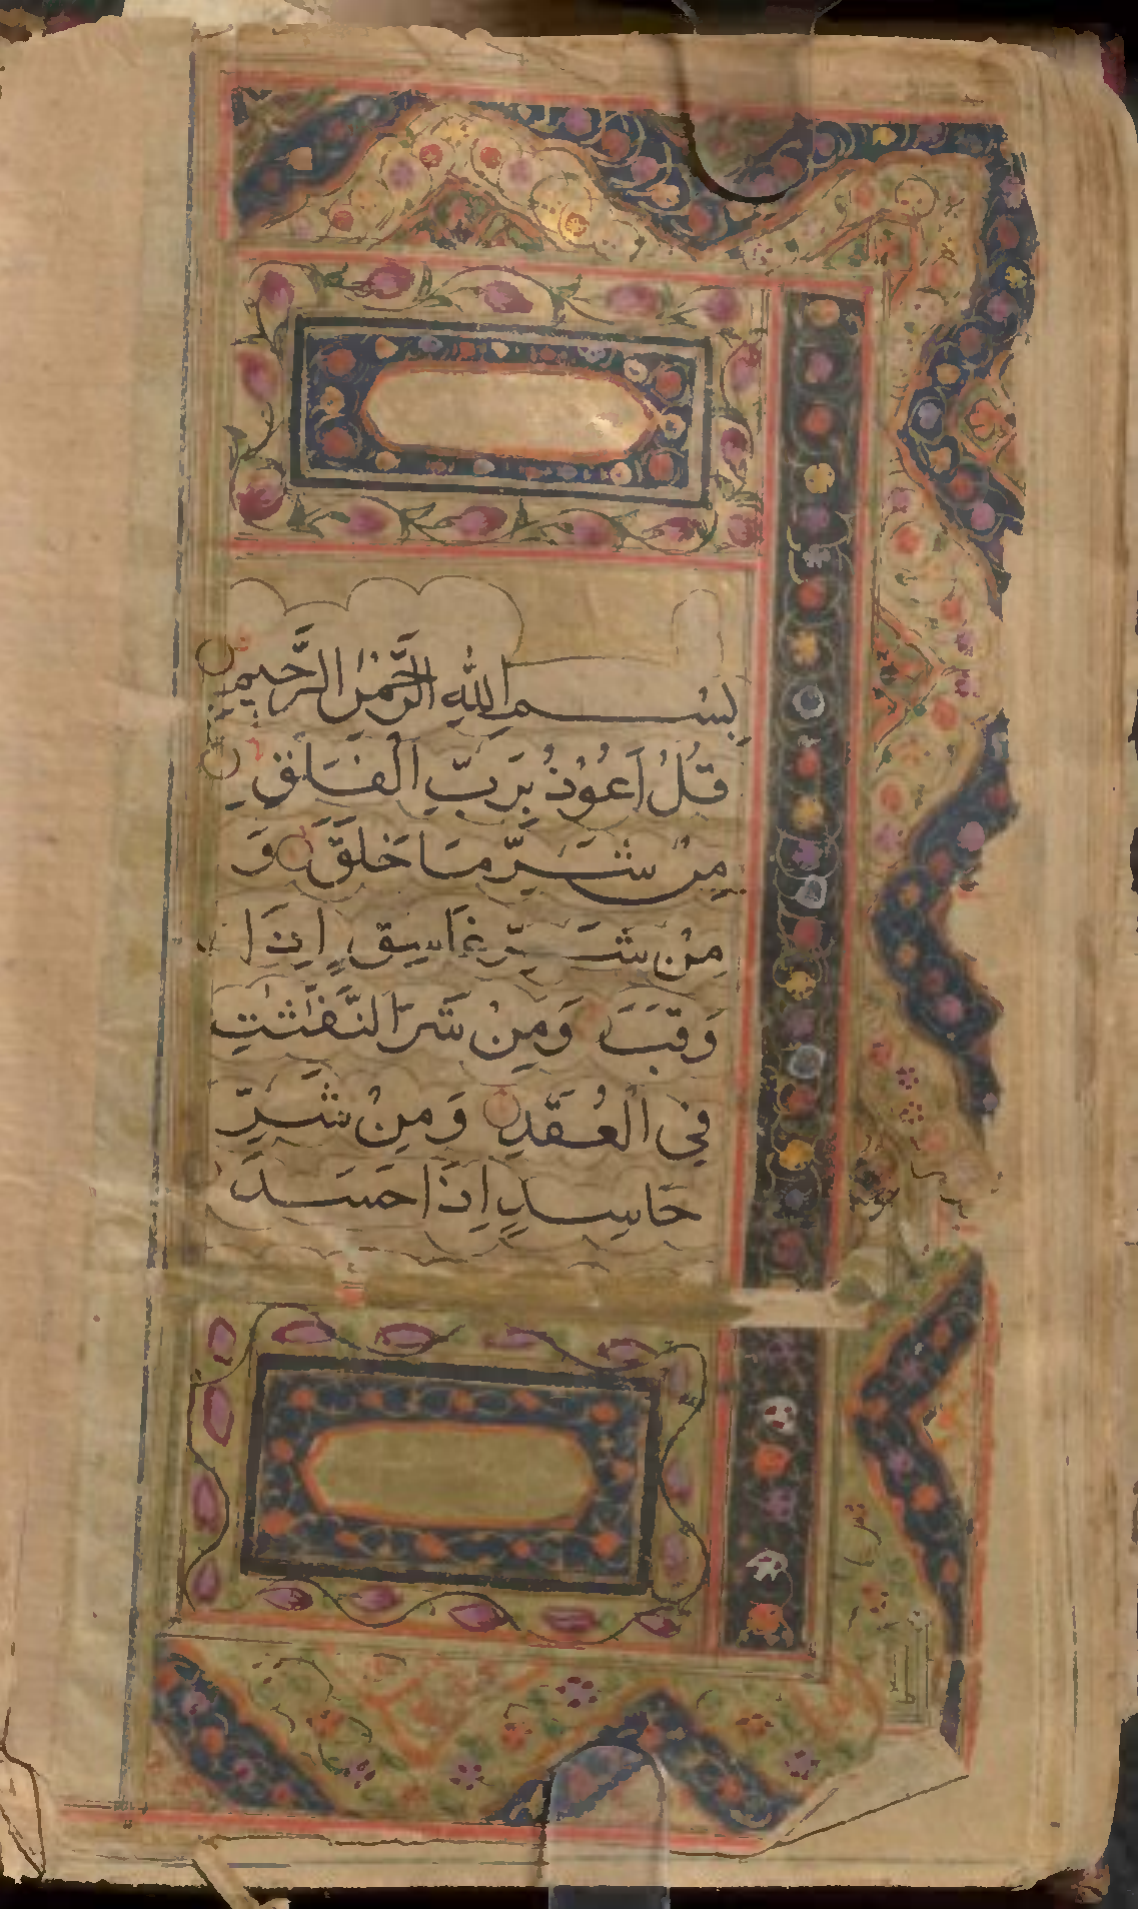 بِسْمِ اللهِ الرَّحْمٰنِ الرَّحِيمِ
قُلْ اَعُوْذُ بِرَبِّ الْفَلَقِ
مِنْ شَرِّ مَا خَلَقَ وَ
مِنْ شَرِّ غَاسِقٍ اِذَا
وَقَبَ وَمِنْ شَرِّ النَّفّٰثٰتِ
فِي الْعُقَدِ وَمِنْ شَرِّ
حَاسِدٍ اِذَا حَسَدَ